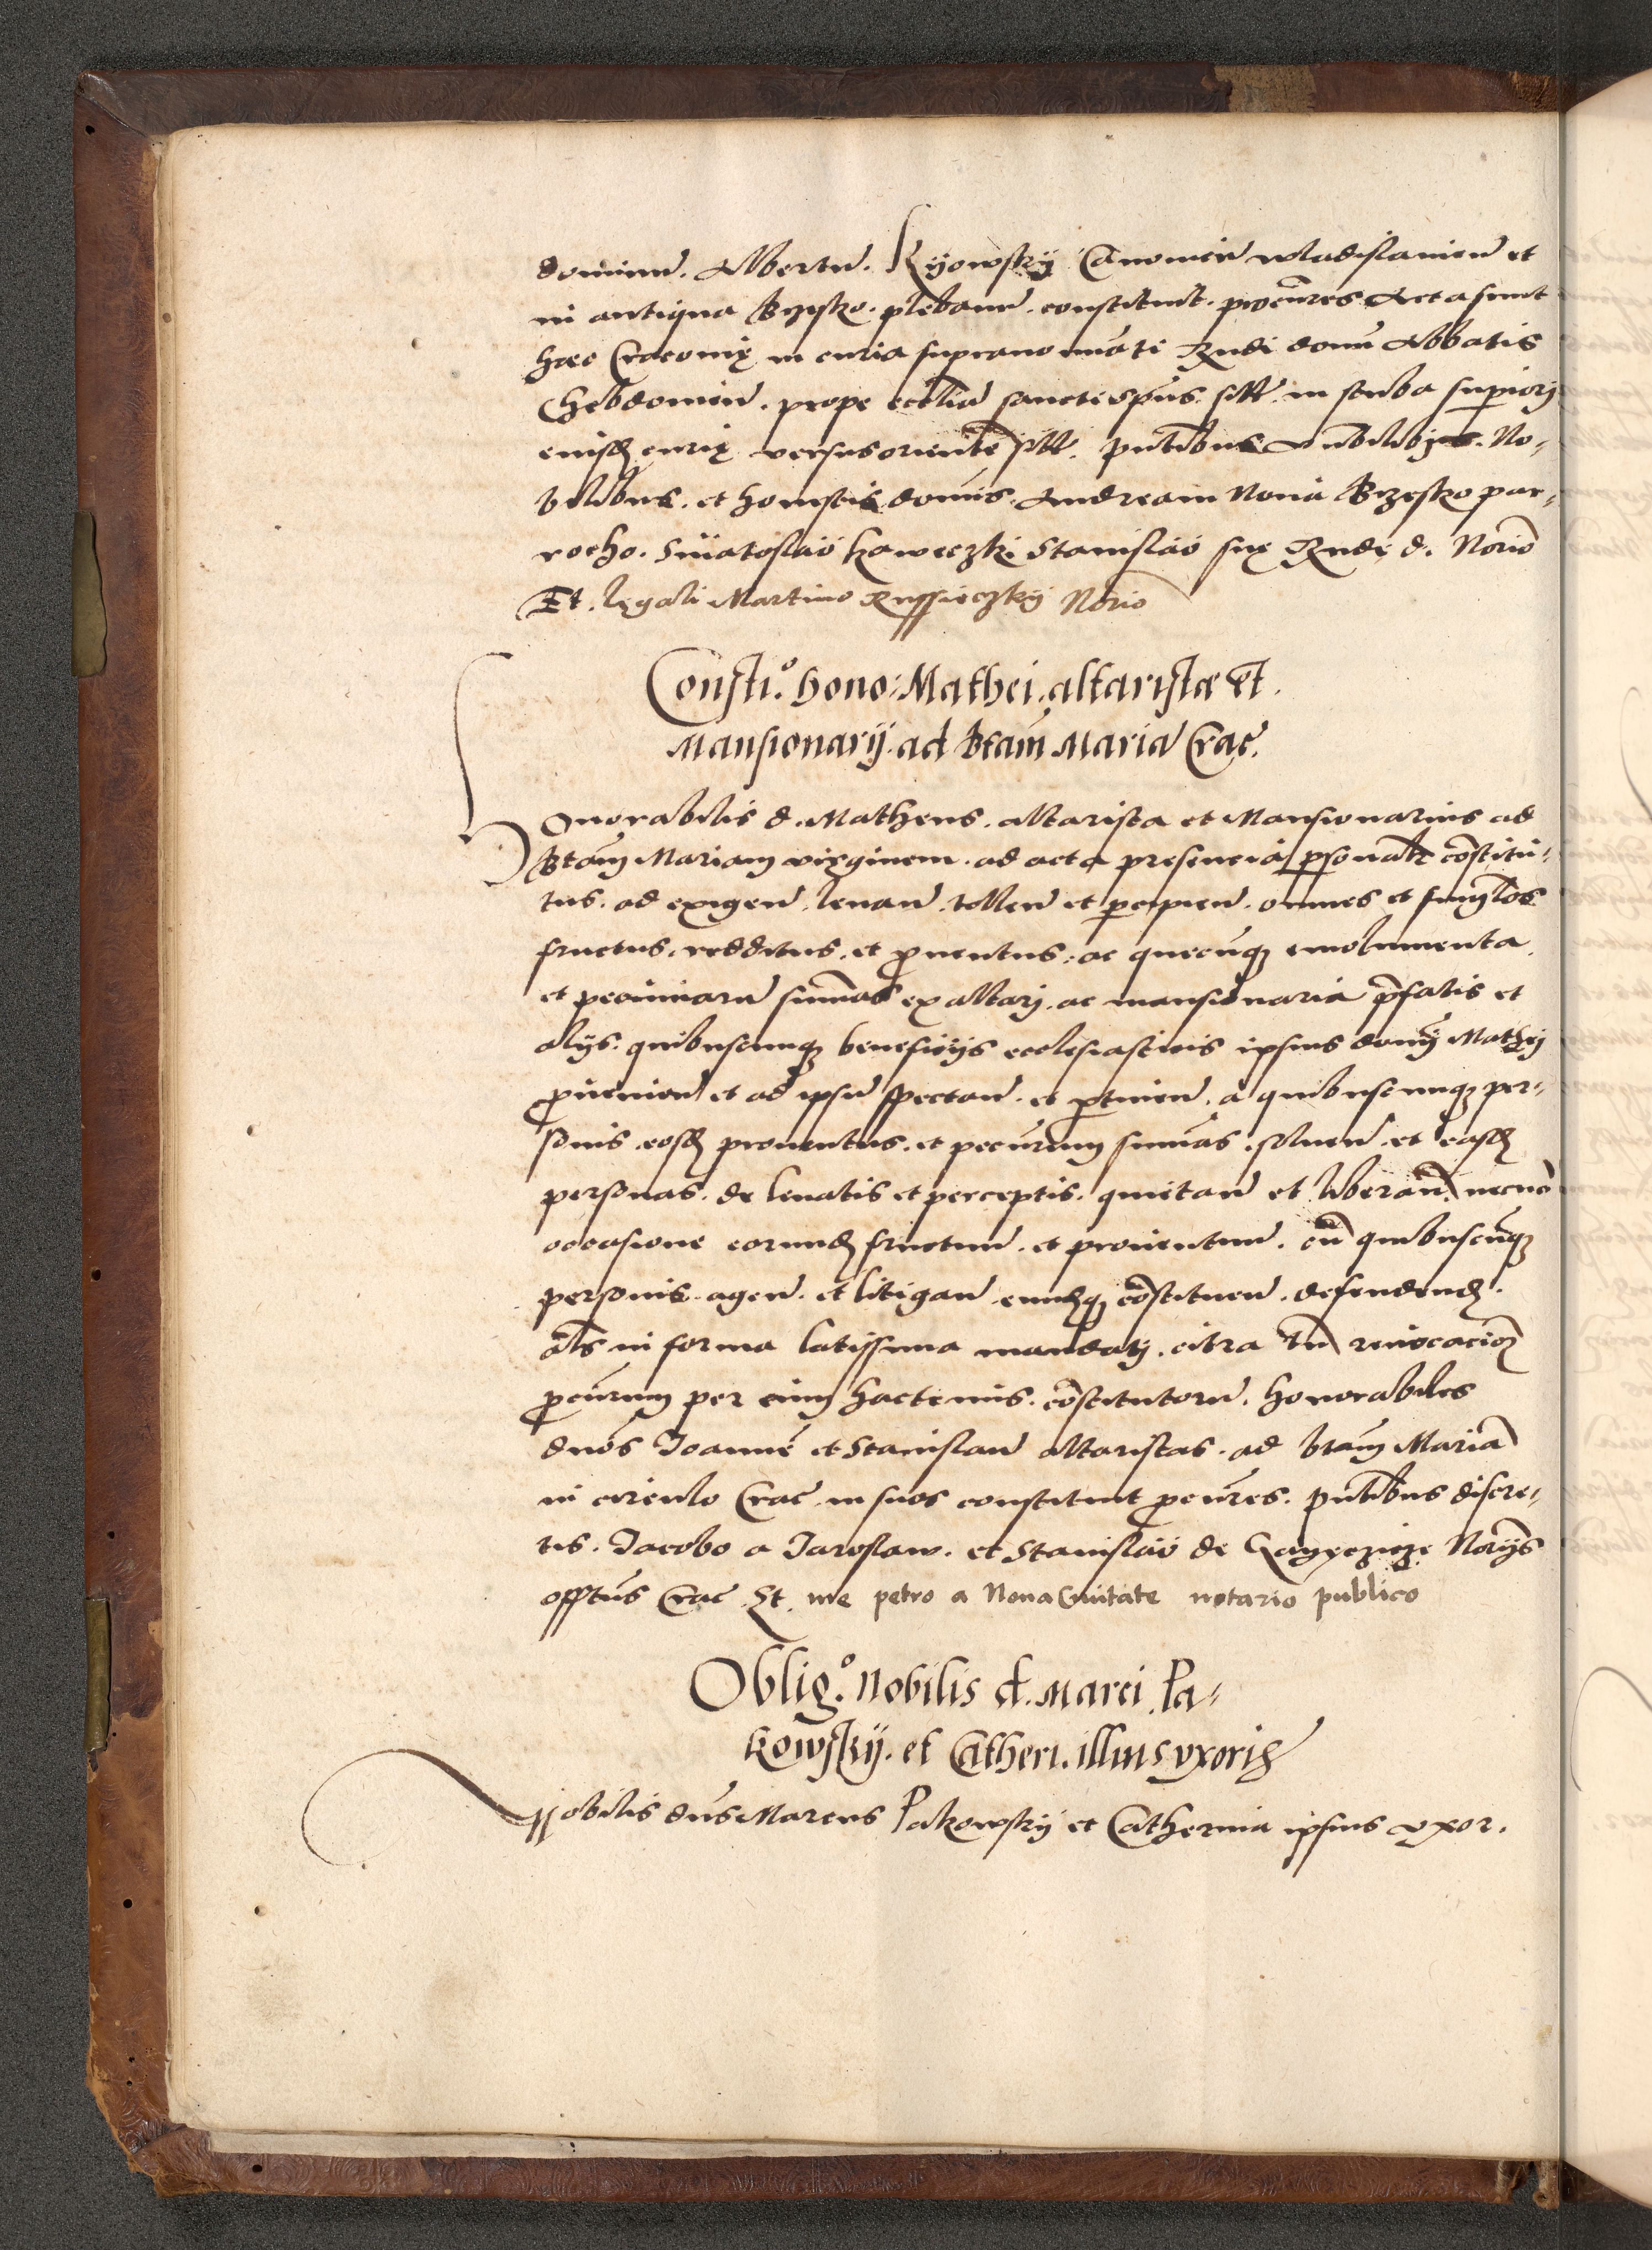 dominũ. Albertũ. Kyiowskÿ Canonicũ wladislauieñ et
in antiqua Brzesko. plebanũ. constituit. procũres Acta sunt
hæc Cracouię in curia supranominati Rndi domi Abbatis
Hebdowieñ. prope eccliã sancti spũs sitt. in stuba superiory
eiusd curię versus orientẽ sitt. pñtibus No-
bilibus. et honestis domis. Andrea in Noua Brzesko par-
rocho. Swiatoslaŏ kaweczki Stanislaŏ suę Rnde d. Noriŏ
Et. legali Martino Russieczkÿ Norio
Consti.º hono: Mathei. altaristæ et.
Mansionarij. ad btam Mariã Crac.
Honorabilis d. Matheus. altarista et Mansionarius ad
Btam Mariam virginem. ad acta presencia psonalr cõstitu-
tus. ad exigeñ. leuañ. tolleñ et percipieñ. omnes et singlos
fructus. redditus. et prouentus. ac quecũq emolumenta
et pecuniarũ summas ex altari. ac mansionaria pfatis et
alijs. quibuscunq beneficijs ecclesiasticis ipsius domi Mathej
prouenieñ et ad ipsũ spectañ. et ptineñ. a quibuscunq per-
sonis. eosd prouentus. et pecũrum sumas. solueñ. et easd
personas. de leuatis et perceptis. quietañ et liberañ. necnõ
occasione eorund fructuũ. et prouentuũ. cũ quibuscũq
personis. ageñ. et litigañ eundq cõstitueñ. defendend.
als in forma latissima mandatj. citra tñ reuocacioẽ
procũrum per eum hactenus. cõstitutorũ. honorabiles
dnos Joannẽ et Stanislaũ altaristas. ad btam Mariã
in circulo Crac in suos constituit procũres. pñtibus discre-
tis. Jacobo a Jaroslaw. et Stanislaŏ de Norijs
offtus Crac Et. me petro a Noua Ciuitate notario publico
Oblig.º nobilis d. Marci Pa-
kowskÿ. et Catheri. illius vxoris
Nobilis dns Marcus Pakowskÿ et Catherina ipsius vxor.